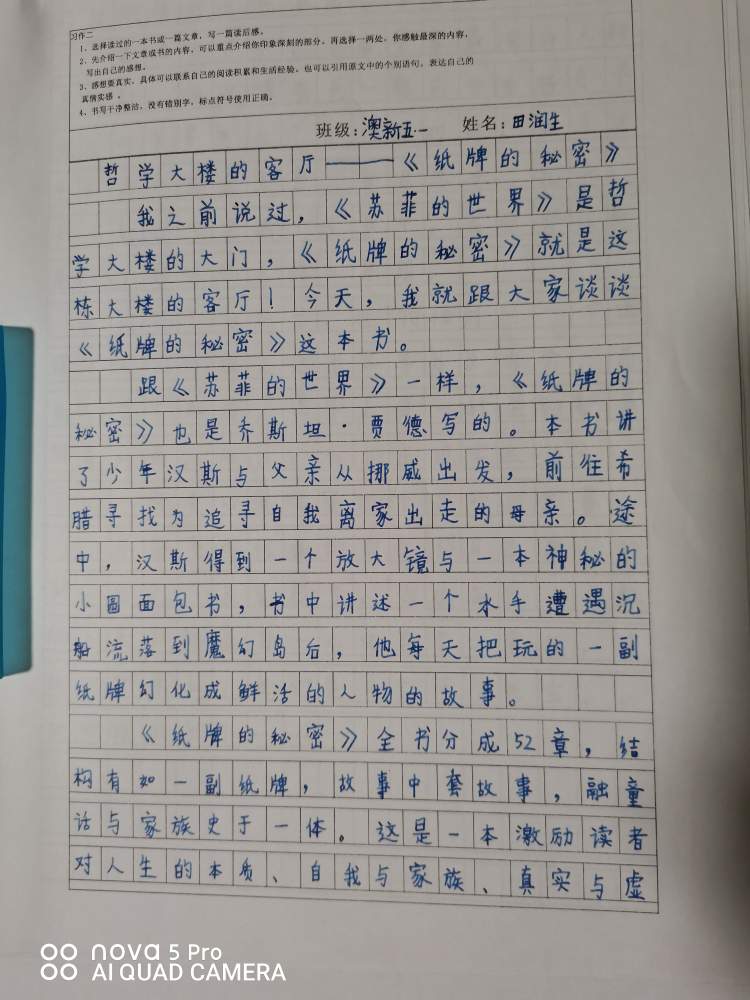 习作二
1、选择读过的一本书或一篇文章，写一篇读后感。
2、先介绍一下文章或书的内容，可以重点介绍你印象深刻的部分，再选择一两处，你感触最深的内容，
写出自己的感想。
3、感想要真实，具体可以联系自己的阅读积累和生活经验，也可以引用原文中的个别语句，表达自己的
真情实感 。
4、书写干净整洁，没有错别字，标点符号使用正确。
班级：澳新五一 姓名：田润生
哲学大楼的客厅——《纸牌的秘密》
我之前说过，《苏菲的世界》是哲
学大楼的大门，《纸牌的秘密》就是这
栋大楼的客厅！今天，我就跟大家谈谈
《纸牌的秘密》这本书。
跟《苏菲的世界》一样，《纸牌的
秘密》也是乔斯坦·贾德写的。本书讲
了少年汉斯与父亲从挪威出发，前往希
腊寻找为追寻自我离家出走的母亲。途
中，汉斯得到一个放大镜与一本神秘的
小圆面包书，书中讲述一个水手遭遇沉
船流落到魔幻岛后，他每天把玩的一副
纸牌幻化成鲜活的人物的故事。
《纸牌的秘密》全书分成52章，结
构有如一副纸牌，故事中套故事，融童
话与家族史于一体。这是一本激励读者
对人生的本质、自我与家族、真实与虚
nova 5 Pro
AI QUAD CAMERA